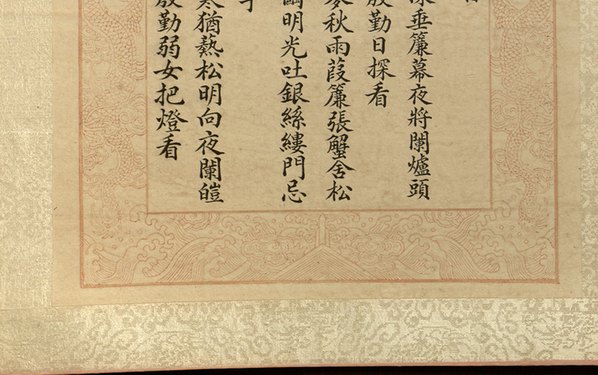 垂簾幕夜將闌爐頭
殷勤日探看
秋雨葭簾張蟹舍松
明光吐銀絲縷門忌
猶熱松明向夜闌皚
殷勤弱女把燈看